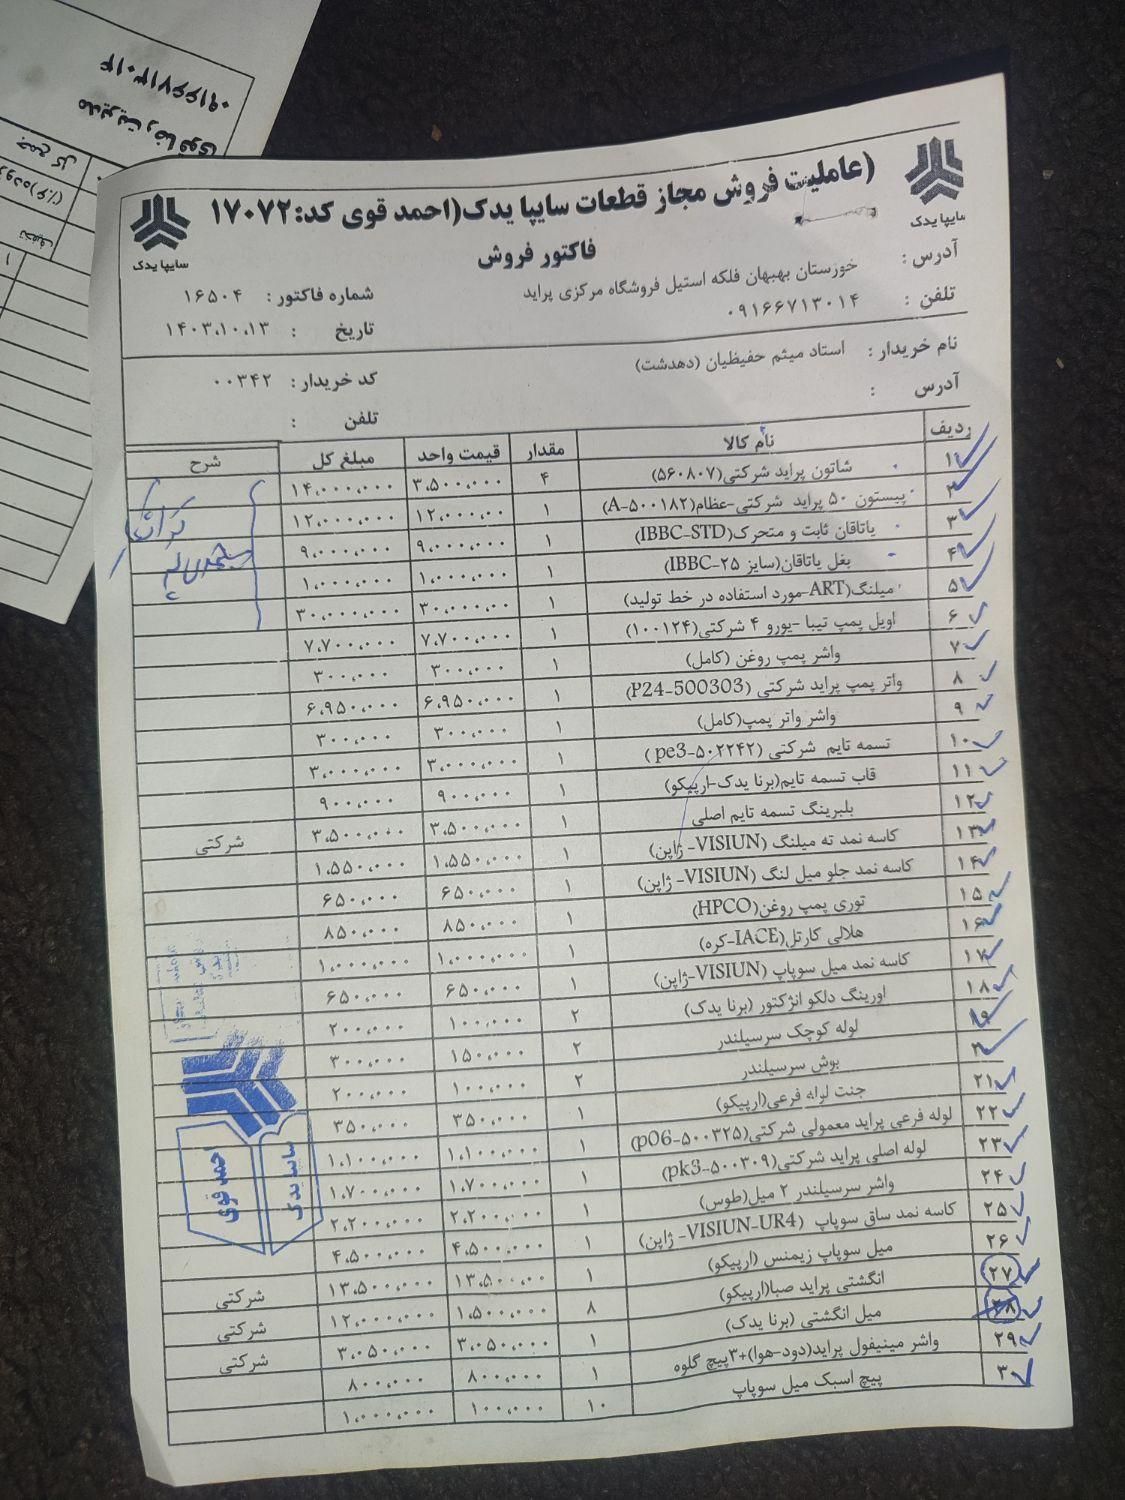 ۰۹۱۶۶۷۱۳۰۱۴
مدیریت رضا قوی
جمع کل
تخفیف
(عاملیت فروش مجاز قطعات سایپا یدک(احمد قوی کد:۱۷۰۷۲
سایپا یدک
سایپا یدک
فاکتور فروش
آدرس : خوزستان بهبهان فلکه استیل فروشگاه مرکزی پراید
شماره فاکتور : ۱۶۵۰۴
تلفن : ۰۹۱۶۶۷۱۳۰۱۴
تاریخ : ۱۴۰۳،۱۰،۱۳
نام خریدار : استاد میثم حفیظیان (دهدشت)
کد خریدار : ۰۰۳۴۲
آدرس :
تلفن :
ردیف نام کالا مقدار قیمت واحد مبلغ کل شرح
۱ شاتون پراید شرکتی(۵۶۰۸۰۷) ۴ ۳،۵۰۰،۰۰۰ ۱۴،۰۰۰،۰۰۰
۲ پیستون ۵۰ پراید شرکتی-عظام(A-۵۰۰۱۸۲) ۱ ۱۲،۰۰۰،۰۰ ۱۲،۰۰۰،۰۰۰
۳ یاتاقان ثابت و متحرک(IBBC-STD) ۱ ۹،۰۰۰،۰۰۰ ۹،۰۰۰،۰۰۰
۴ بغل یاتاقان(سایز ۲۵-IBBC) ۱ ۱،۰۰۰،۰۰۰ ۱،۰۰۰،۰۰۰
۵ میلنگ(ART-مورد استفاده در خط تولید) ۱ ۳۰،۰۰۰،۰۰ ۳۰،۰۰۰،۰۰۰
۶ اویل پمپ تیبا -یورو ۴ شرکتی(۱۰۰۱۲۴) ۱ ۷،۷۰۰،۰۰۰ ۷،۷۰۰،۰۰۰
۷ واشر پمپ روغن (کامل) ۱ ۳۰۰،۰۰۰ ۳۰۰،۰۰۰
۸ واتر پمپ پراید شرکتی (P24-500303) ۱ ۶،۹۵۰،۰۰۰ ۶،۹۵۰،۰۰۰
۹ واشر واتر پمپ(کامل) ۱ ۳۰۰،۰۰۰ ۳۰۰،۰۰۰
۱۰ تسمه تایم شرکتی (pe3-۵۰۲۲۴۲) ۱ ۳،۰۰۰،۰۰۰ ۳،۰۰۰،۰۰۰
۱۱ قاب تسمه تایم(برنا یدک-ارپیکو) ۱ ۹۰۰،۰۰۰ ۹۰۰،۰۰۰
۱۲ بلبرینگ تسمه تایم اصلی ۱ ۳،۵۰۰،۰۰۰ ۳،۵۰۰،۰۰۰ شرکتی
۱۳ کاسه نمد ته میلنگ (VISIUN- ژاپن) ۱ ۱،۵۵۰،۰۰۰ ۱،۵۵۰،۰۰۰
۱۴ کاسه نمد جلو میل لنگ (VISIUN- ژاپن) ۱ ۶۵۰،۰۰۰ ۶۵۰،۰۰۰
۱۵ توری پمپ روغن(HPCO) ۱ ۸۵۰،۰۰۰ ۸۵۰،۰۰۰
۱۶ هلالی کارتل(IACE-کره) ۱ ۱،۰۰۰،۰۰۰ ۱،۰۰۰،۰۰۰
۱۷ کاسه نمد میل سوپاپ (VISIUN-ژاپن) ۱ ۶۵۰،۰۰۰ ۶۵۰،۰۰۰
۱۸ اورینگ دلکو انژکتور (برنا یدک) ۲ ۱۰۰،۰۰۰ ۲۰۰،۰۰۰
۱۹ لوله کوچک سرسیلندر ۲ ۱۵۰،۰۰۰ ۳۰۰،۰۰۰
۲۰ بوش سرسیلندر ۲ ۱۰۰،۰۰۰ ۲۰۰،۰۰۰
۲۱ جنت لوله فرعی(ارپیکو) ۱ ۳۵۰،۰۰۰ ۳۵۰،۰۰۰
۲۲ لوله فرعی پراید معمولی شرکتی(p06-۵۰۰۳۲۵) ۱ ۱،۱۰۰،۰۰۰ ۱،۱۰۰،۰۰۰
۲۳ لوله اصلی پراید شرکتی(pk3-۵۰۰۳۰۹) ۱ ۱،۷۰۰،۰۰۰ ۱،۷۰۰،۰۰۰
۲۴ واشر سرسیلندر ۲ میل(طوس) ۱ ۲،۲۰۰،۰۰۰ ۲،۲۰۰،۰۰۰
۲۵ کاسه نمد ساق سوپاپ (VISIUN-UR4- ژاپن) ۱ ۴،۵۰۰،۰۰۰ ۴،۵۰۰،۰۰۰
۲۶ میل سوپاپ زیمنس (ارپیکو) ۱ ۱۳،۵۰۰،۰۰ ۱۳،۵۰۰،۰۰۰ شرکتی
۲۷ انگشتی پراید صبا(ارپیکو) ۸ ۱،۵۰۰،۰۰۰ ۱۲،۰۰۰،۰۰۰ شرکتی
۲۸ میل انگشتی (برنا یدک) ۱ ۳،۰۵۰،۰۰۰ ۳،۰۵۰،۰۰۰ شرکتی
۲۹ واشر مینیفول پراید(دود-هوا)+۳پیچ گلوه ۱ ۸۰۰،۰۰۰ ۸۰۰،۰۰۰
۳۰ پیچ اسبک میل سوپاپ ۱۰ ۱۰۰،۰۰۰ ۱،۰۰۰،۰۰۰
احمد قوی
سایپا یدک